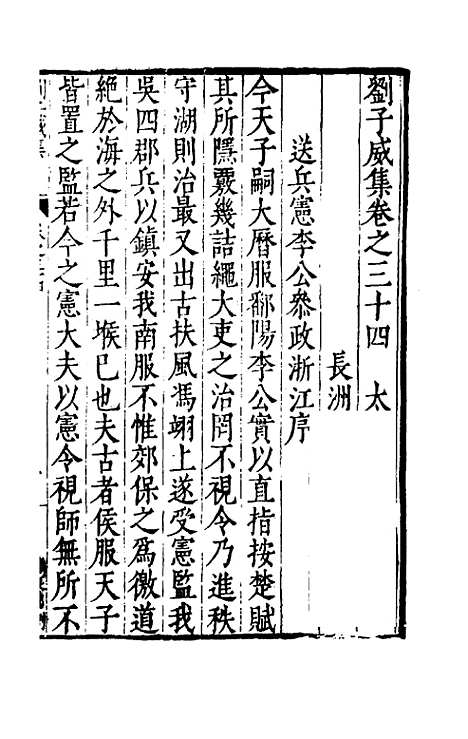 劉子威集卷之三十四　太
長洲
送兵憲李公叅政浙江序
今天子嗣大曆服鄱陽李公實以直指按楚賦
其所隱覈幾詰繩大吏之治罔不視令乃進秩
守湖則治最又出古扶風馮翊上遂受憲監我
吳四郡兵以鎮安我南服不惟郊保之爲徼道
絶於海之外千里一堠已也夫古者侯服天子
皆置之監若今之憲大夫以憲令視師無所不